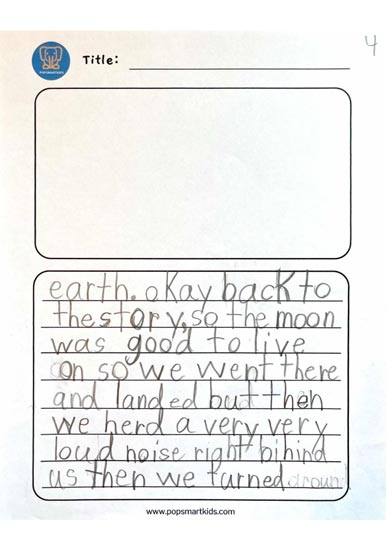 4
POPSMARTKIDS
Title:
earth. okay back to
the story, so the moon
was good to live
on so we went there
and landed but then
we herd a very very
loud noise right bihind
us then we turned around
www.popsmartkids.com